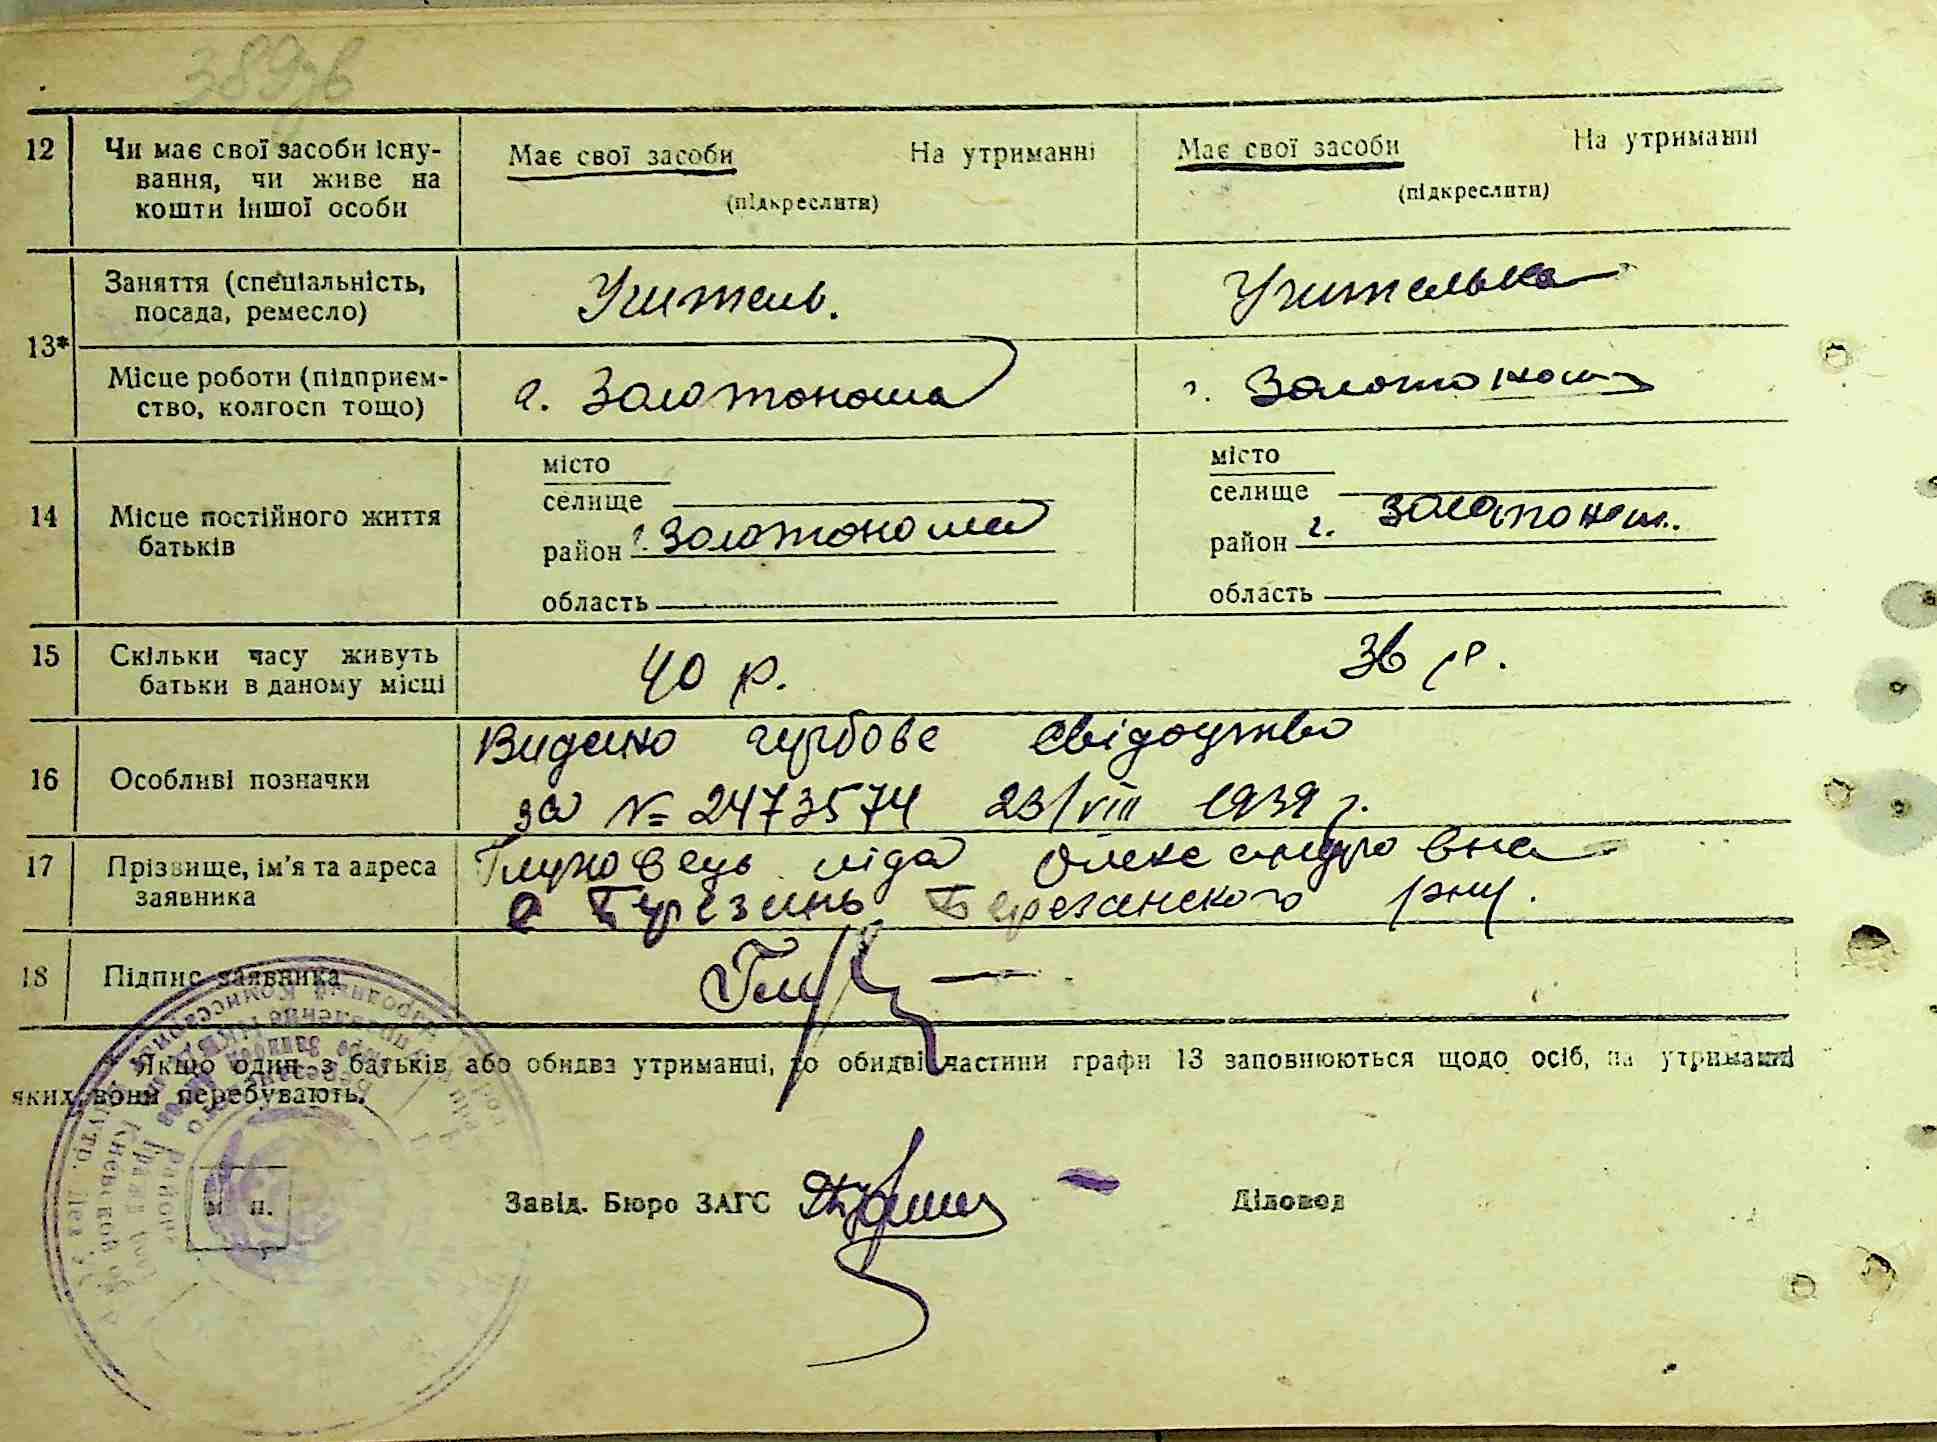 389зв
12 Чи має свої засоби існу-
вання, чи живе на
кошти іншої особи
Має свої засоби На утриманні
(підкреслити)
Має свої засоби На утриманні
(підкреслити)
13*
Заняття (спеціальність,
посада, ремесло)
Учитель.
Учителька
Місце роботи (підприєм-
ство, колгосп тощо)
г. Золотоноша
г. Золотонош
14 Місце постійного життя
батьків
місто
селище
район г. Золотоноша
область
місто
селище
район г. Золотонош.
область
15 Скільки часу живуть
батьки в даному місці
40 р.
36 р.
16 Особливі позначки
Видано гербове свідоцтво
за № 2473574 23/VIII 1939 г.
17 Прізвище, ім'я та адреса
заявника
Глуховець Ліда Олександровна
с Березань Березанского рну.
18 Підпис заявника
Якщо один з батьків або обидва утриманці, то обидві частини графи 13 заповнюються щодо осіб, на утриманні
яких вони перебувають.
м. п.
Завід. Бюро ЗАГС
Діловод